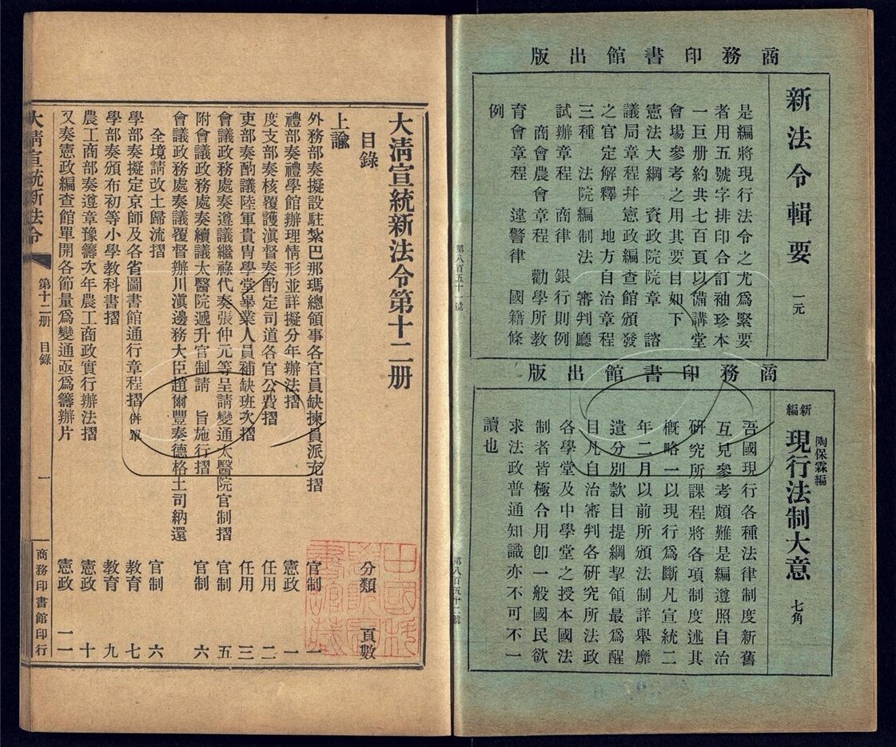 商務印書館出版
新法令輯要 一元
是編將現行法令之尤爲緊要
者用五號字排印合訂袖珍本
一巨册約共七百頁以備講堂
會場參考之用其要目如下
憲法大綱 資政院院章 諮
議局章程幷憲政編查館頒發
之官定解釋 地方自治章程
三種 法院編制法 審判廳
試辦章程 商律 銀行則例
商會農會章程 勸學所教
育會章程 違警律 國籍條
例
商務印書館出版
新編 現行法制大意 陶保霖編 七角
吾國現行各種法律制度新舊
互見參考頗難是編遵照自治
研究所課程將各項制度述其
概略一以現行爲斷凡宣統二
年二月以前所頒法制詳舉靡
遺分別款目提綱挈領最爲醒
目凡自治審判各研究所法政
各學堂及中學堂之授本國法
制者皆極合用卽一般國民欲
求法政普通知識亦不可不一
讀也
大淸宣統新法令第十二册
目錄 分類 頁數
上諭
外務部奏擬設駐紮巴那瑪總領事各官員缺揀員派充摺 官制 一
禮部奏禮學館辦理情形並詳擬分年辦法摺 憲政 一
度支部奏核覆護滇督奏酌定司道各官公費摺 任用 二
吏部奏酌議陸軍貴冑學堂畢業人員補缺班次摺 任用 三
會議政務處奏遵議繼祿代奏張仲元等呈請變通太醫院官制摺 官制 五
附會議政務處奏續議太醫院遞升官制請 旨施行摺 官制 六
會議政務處奏議覆督辦川滇邊務大臣趙爾豐奏德格土司納還
全境請改土歸流摺 官制 六
學部奏擬定京師及各省圖書館通行章程摺 併單 教育 七
學部奏頒布初等小學教科書摺 教育 九
農工商部奏遵章豫籌次年農工商政實行辦法摺 憲政 十
又奏憲政編查館單開各節量爲變通亟爲籌辦片 憲政 一一
大淸宣統新法令 第十二册 目錄 一 商務印書館印行